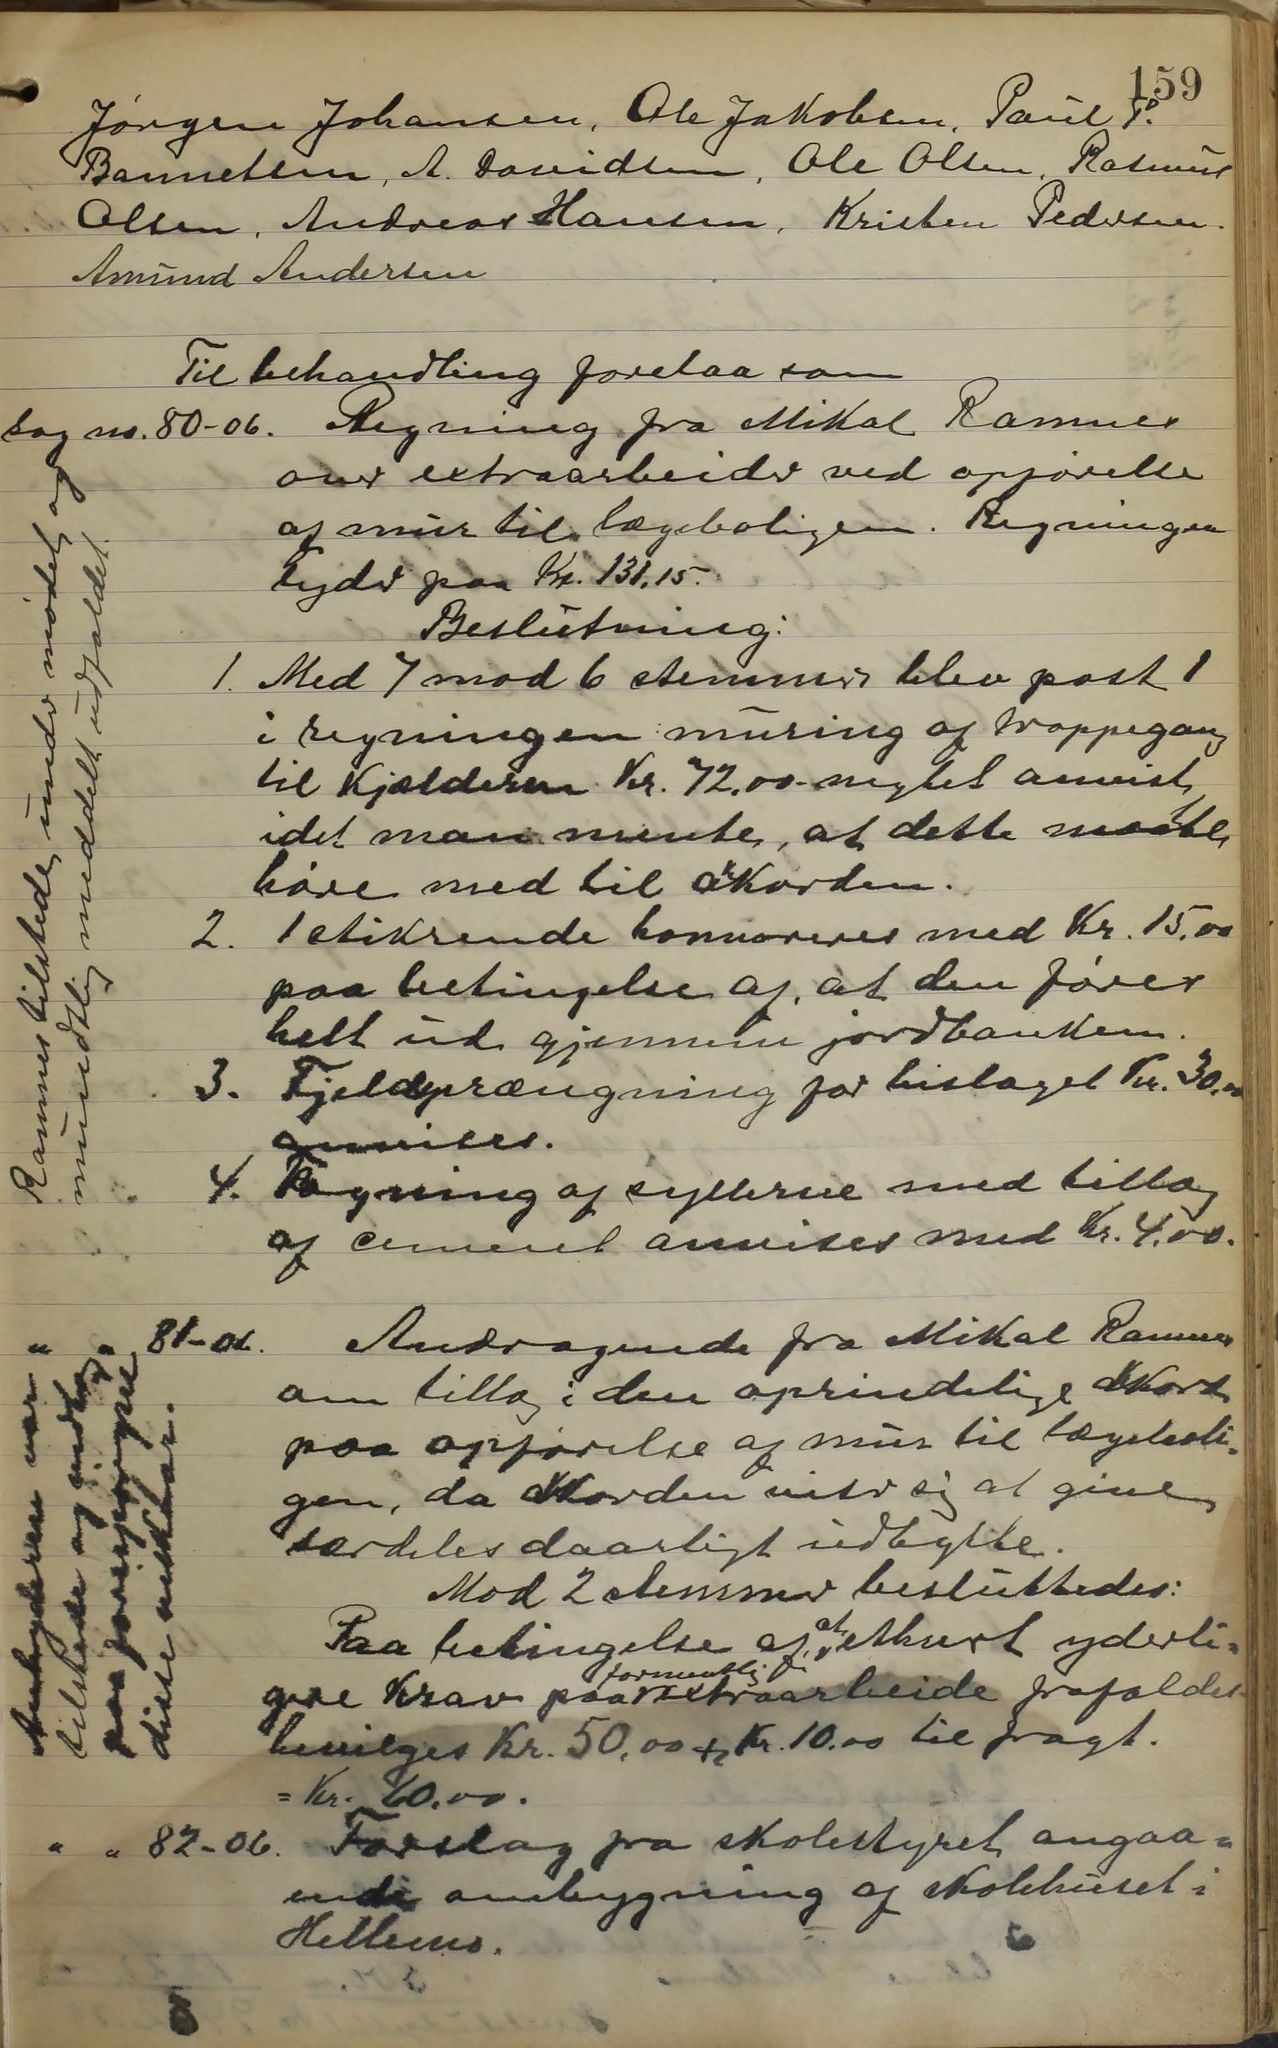 159
Jørgen Johansen, Ole Jakobsen, Paul P.
Bannetsen, A. Davidsen, Ole Olsen, Rasmus
Olsen, Andreas Hansen, Kristen Pedersen.
Amund Andersen
Til behandling forelaa som
Sag no. 80-06. Regning fra Mikal Ramnes
over extraarbeider ved opførelse
af mur til lægeboligen. Regningen
lyder paa Kr. 131.15.
Beslutning:
1. Med 7 mod 6 stemmer blev post 1
i regningen muring af trappegang
til kjælderen Kr. 72.00 negtet anvist,
idet man mente, at dette maatte
høre med til akkorden.
2. 1 stikrende honnoreres med Kr. 15.00
paa betingelse af, at den føres
helt ud gjennem jordbanken.
3. Fjeldsprængning for bislaget Kr. 30.00
anvises.
4. Fugning af syllerne med tillæg
af cement anvises med Kr. 4.00.
Ramnes tilstede under mødet og
mundtlig meddelt udfaldet.
" " 81-06. Andragende fra Mikal Ramnes
om tillæg i den oprindelige akkord
paa opførelse af mur til lægeboli-
gen, da akkorden viser sig at give
særdeles daarligt udbytte.
Mod 2 stemmer besluttedes:
Paa betingelse af, at ethvert yderli-
gere krav paa formentlig extraarbeide frafaldes
bevilges Kr. 50.00 + Kr. 10.00 til fragt.
= Kr. 60.00.
Anbyderen var
tilstede og undtog
paa forespørgsel
disse vilkaar.
" " 82-06. Forslag fra skolestyret angaa-
ende ombygning af skolehuset i
Hellemo.